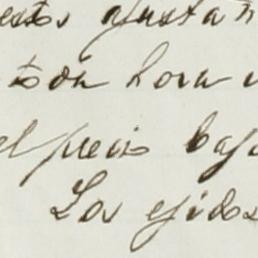 estos ajustan
toda hora
el precio bajo
Los ejidos